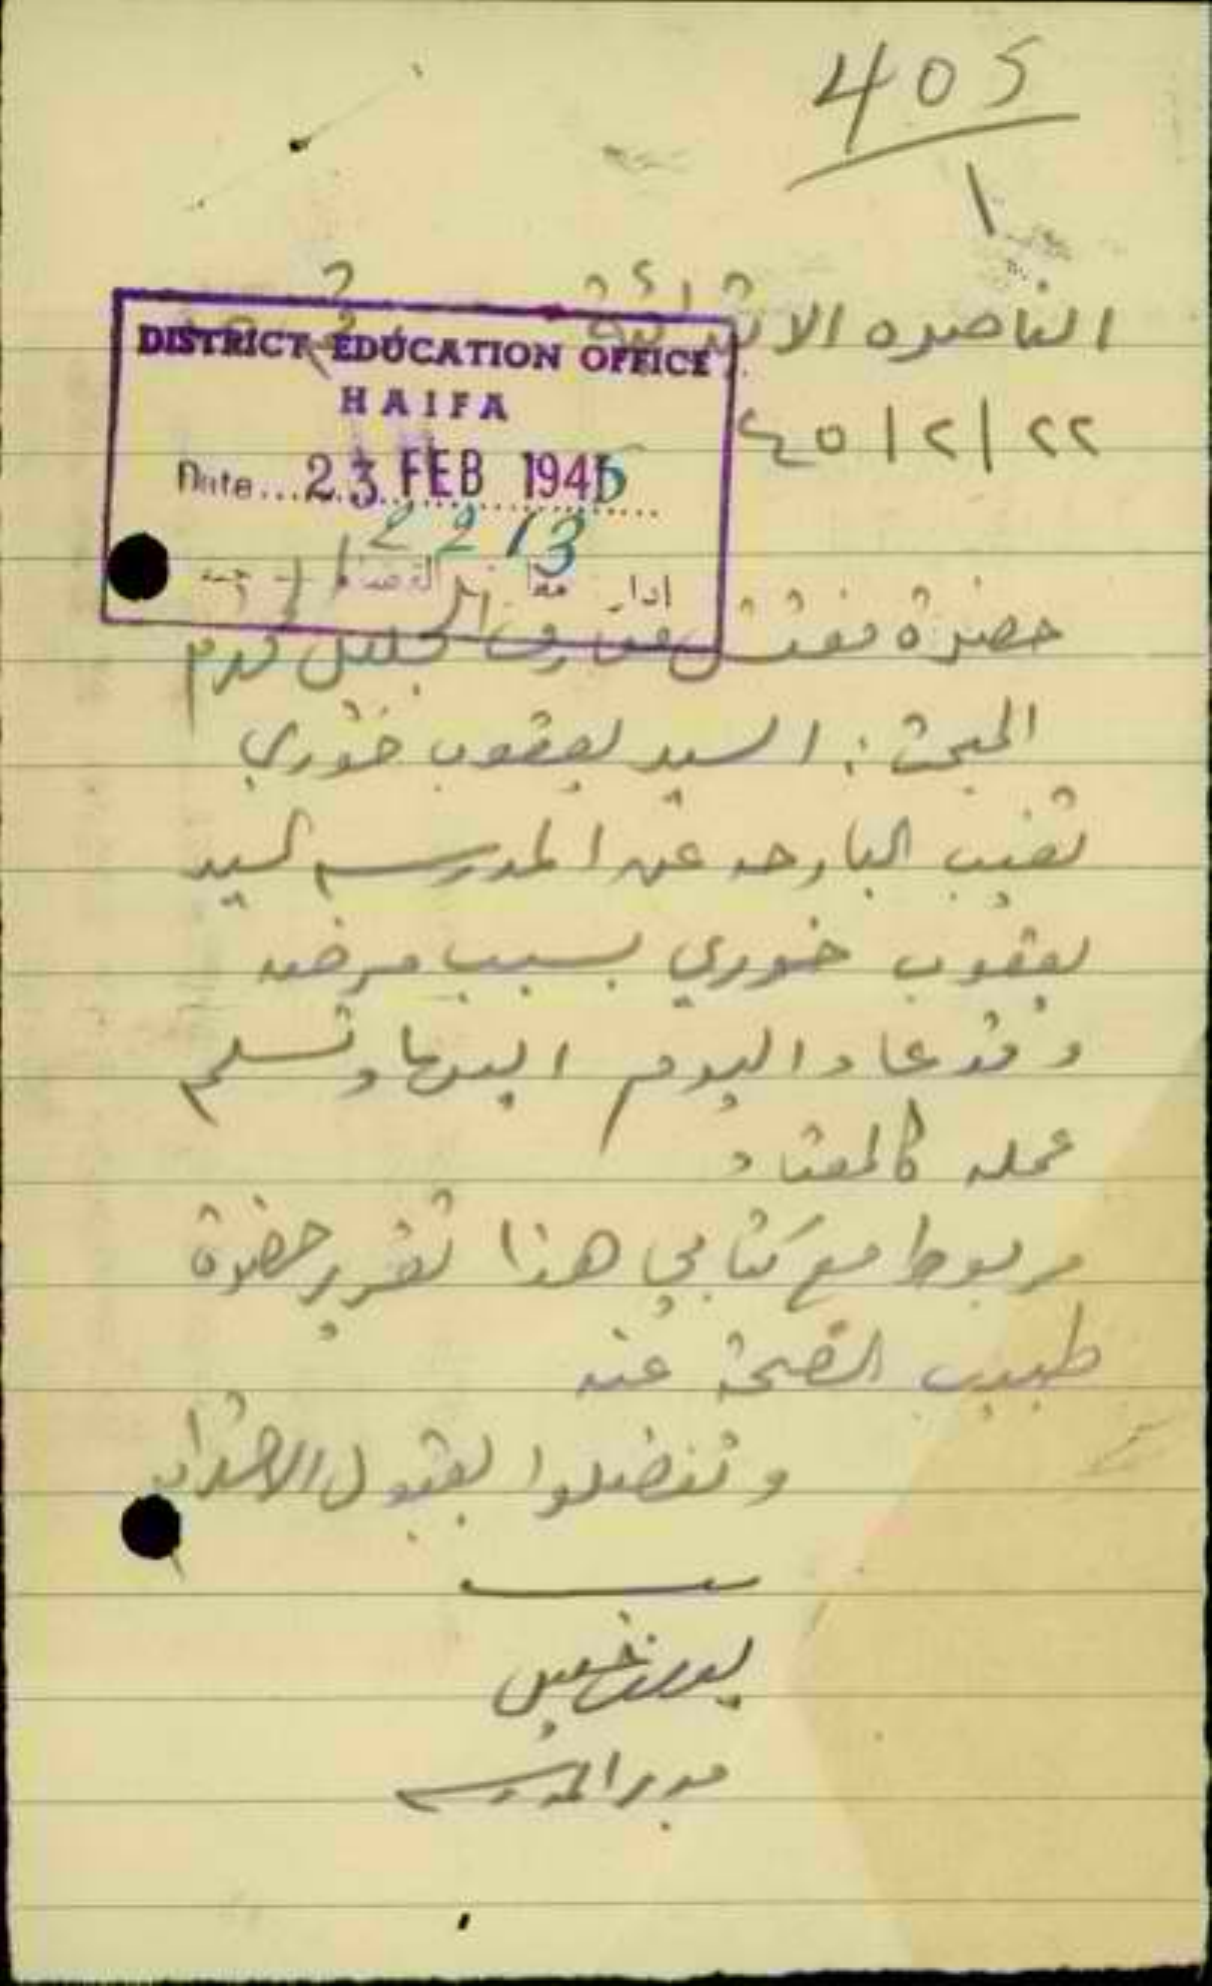 405
١
الناصره الابتدائية
٤٥/٢/٢٢
DISTRICT EDUCATION OFFICE
HAIFA
Date... 23 FEB 1945
2213
حضرة مفتش معارف الجليل
المبحث : السيد يعقوب خوري
تغيب البارحه عن المدرسه السيد
يعقوب خوري بسبب مرضه
وقد عاد اليوم اليها وتسلم
عمله كالمعتاد
مربوط مع كتابي هذا تقرير حضرة
طبيب الصحة عنه
وتفضلوا بقبول الاحترام
مدير المدرسه